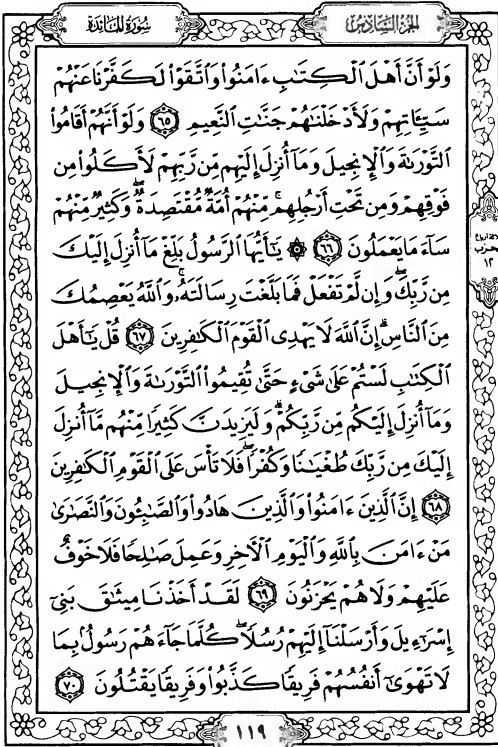 سُورَةُ المَائدة
الجزء السَّادِسُ
وَلَوْ أَنَّ أَهْلَ ٱلْكِتَٰبِ ءَامَنُوا۟ وَٱتَّقَوْا۟ لَكَفَّرْنَا عَنْهُمْ
سَيِّـَٔاتِهِمْ وَلَأَدْخَلْنَٰهُمْ جَنَّٰتِ ٱلنَّعِيمِ ٦٥ وَلَوْ أَنَّهُمْ أَقَامُوا۟
ٱلتَّوْرَىٰةَ وَٱلْإِنجِيلَ وَمَآ أُنزِلَ إِلَيْهِم مِّن رَّبِّهِمْ لَأَكَلُوا۟ مِن
فَوْقِهِمْ وَمِن تَحْتِ أَرْجُلِهِم ۚ مِّنْهُمْ أُمَّةٌ مُّقْتَصِدَةٌ ۖ وَكَثِيرٌ مِّنْهُمْ
سَآءَ مَا يَعْمَلُونَ ٦٦ ۞ يَٰٓأَيُّهَا ٱلرَّسُولُ بَلِّغْ مَآ أُنزِلَ إِلَيْكَ
مِن رَّبِّكَ ۖ وَإِن لَّمْ تَفْعَلْ فَمَا بَلَّغْتَ رِسَالَتَهُۥ ۚ وَٱللَّهُ يَعْصِمُكَ
مِنَ ٱلنَّاسِ ۗ إِنَّ ٱللَّهَ لَا يَهْدِى ٱلْقَوْمَ ٱلْكَٰفِرِينَ ٦٧ قُلْ يَٰٓأَهْلَ
ٱلْكِتَٰبِ لَسْتُمْ عَلَىٰ شَىْءٍ حَتَّىٰ تُقِيمُوا۟ ٱلتَّوْرَىٰةَ وَٱلْإِنجِيلَ
وَمَآ أُنزِلَ إِلَيْكُم مِّن رَّبِّكُمْ ۗ وَلَيَزِيدَنَّ كَثِيرًا مِّنْهُم مَّآ أُنزِلَ
إِلَيْكَ مِن رَّبِّكَ طُغْيَٰنًا وَكُفْرًا ۖ فَلَا تَأْسَ عَلَى ٱلْقَوْمِ ٱلْكَٰفِرِينَ
٦٨ إِنَّ ٱلَّذِينَ ءَامَنُوا۟ وَٱلَّذِينَ هَادُوا۟ وَٱلصَّٰبِـُٔونَ وَٱلنَّصَٰرَىٰ
مَنْ ءَامَنَ بِٱللَّهِ وَٱلْيَوْمِ ٱلْـَٔاخِرِ وَعَمِلَ صَٰلِحًا فَلَا خَوْفٌ
عَلَيْهِمْ وَلَا هُمْ يَحْزَنُونَ ٦٩ لَقَدْ أَخَذْنَا مِيثَٰقَ بَنِىٓ
إِسْرَٰٓءِيلَ وَأَرْسَلْنَآ إِلَيْهِمْ رُسُلًا ۖ كُلَّمَا جَآءَهُمْ رَسُولٌۢ بِمَا
لَا تَهْوَىٰٓ أَنفُسُهُمْ فَرِيقًا كَذَّبُوا۟ وَفَرِيقًا يَقْتُلُونَ ٧٠
١١٩